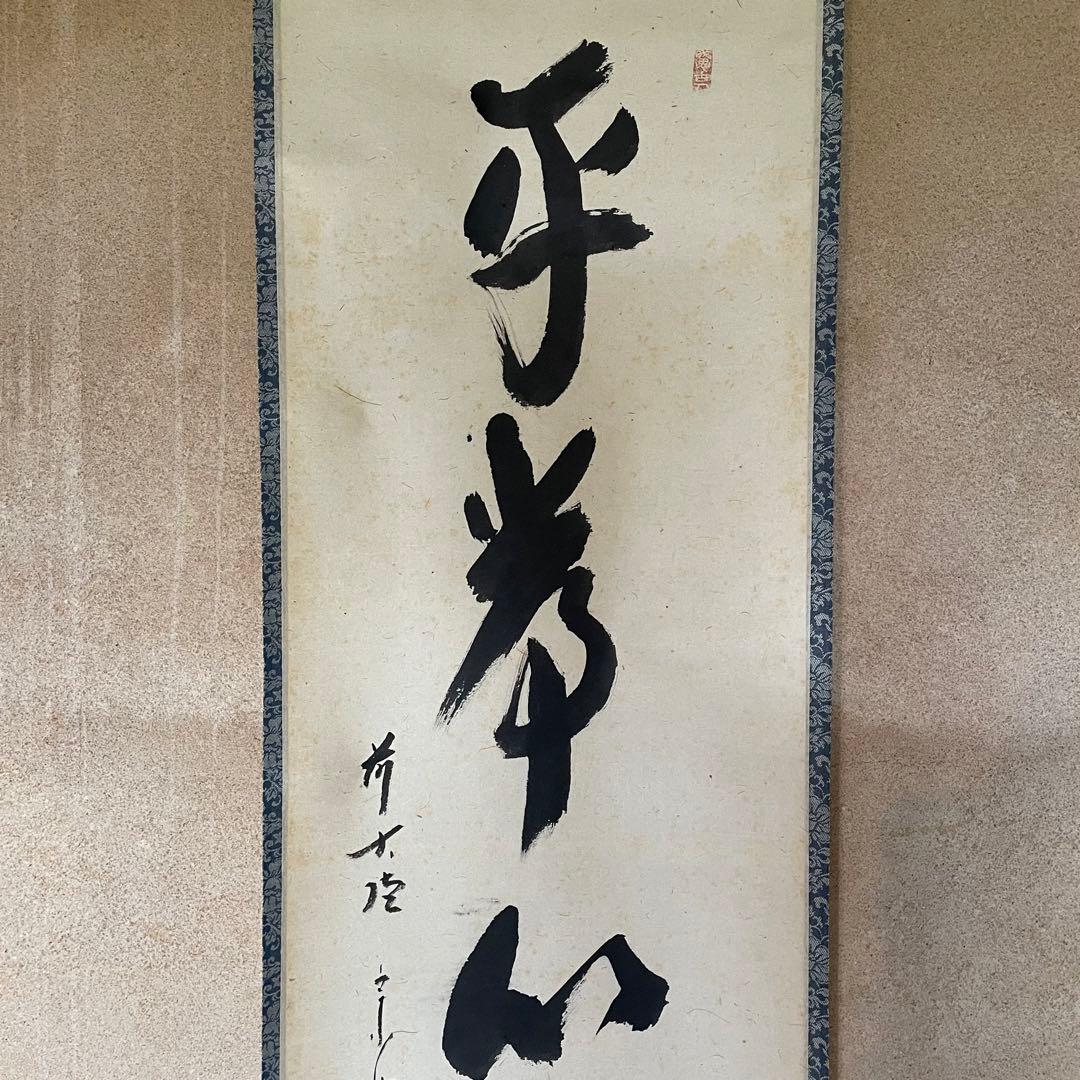 平常心
前大徳